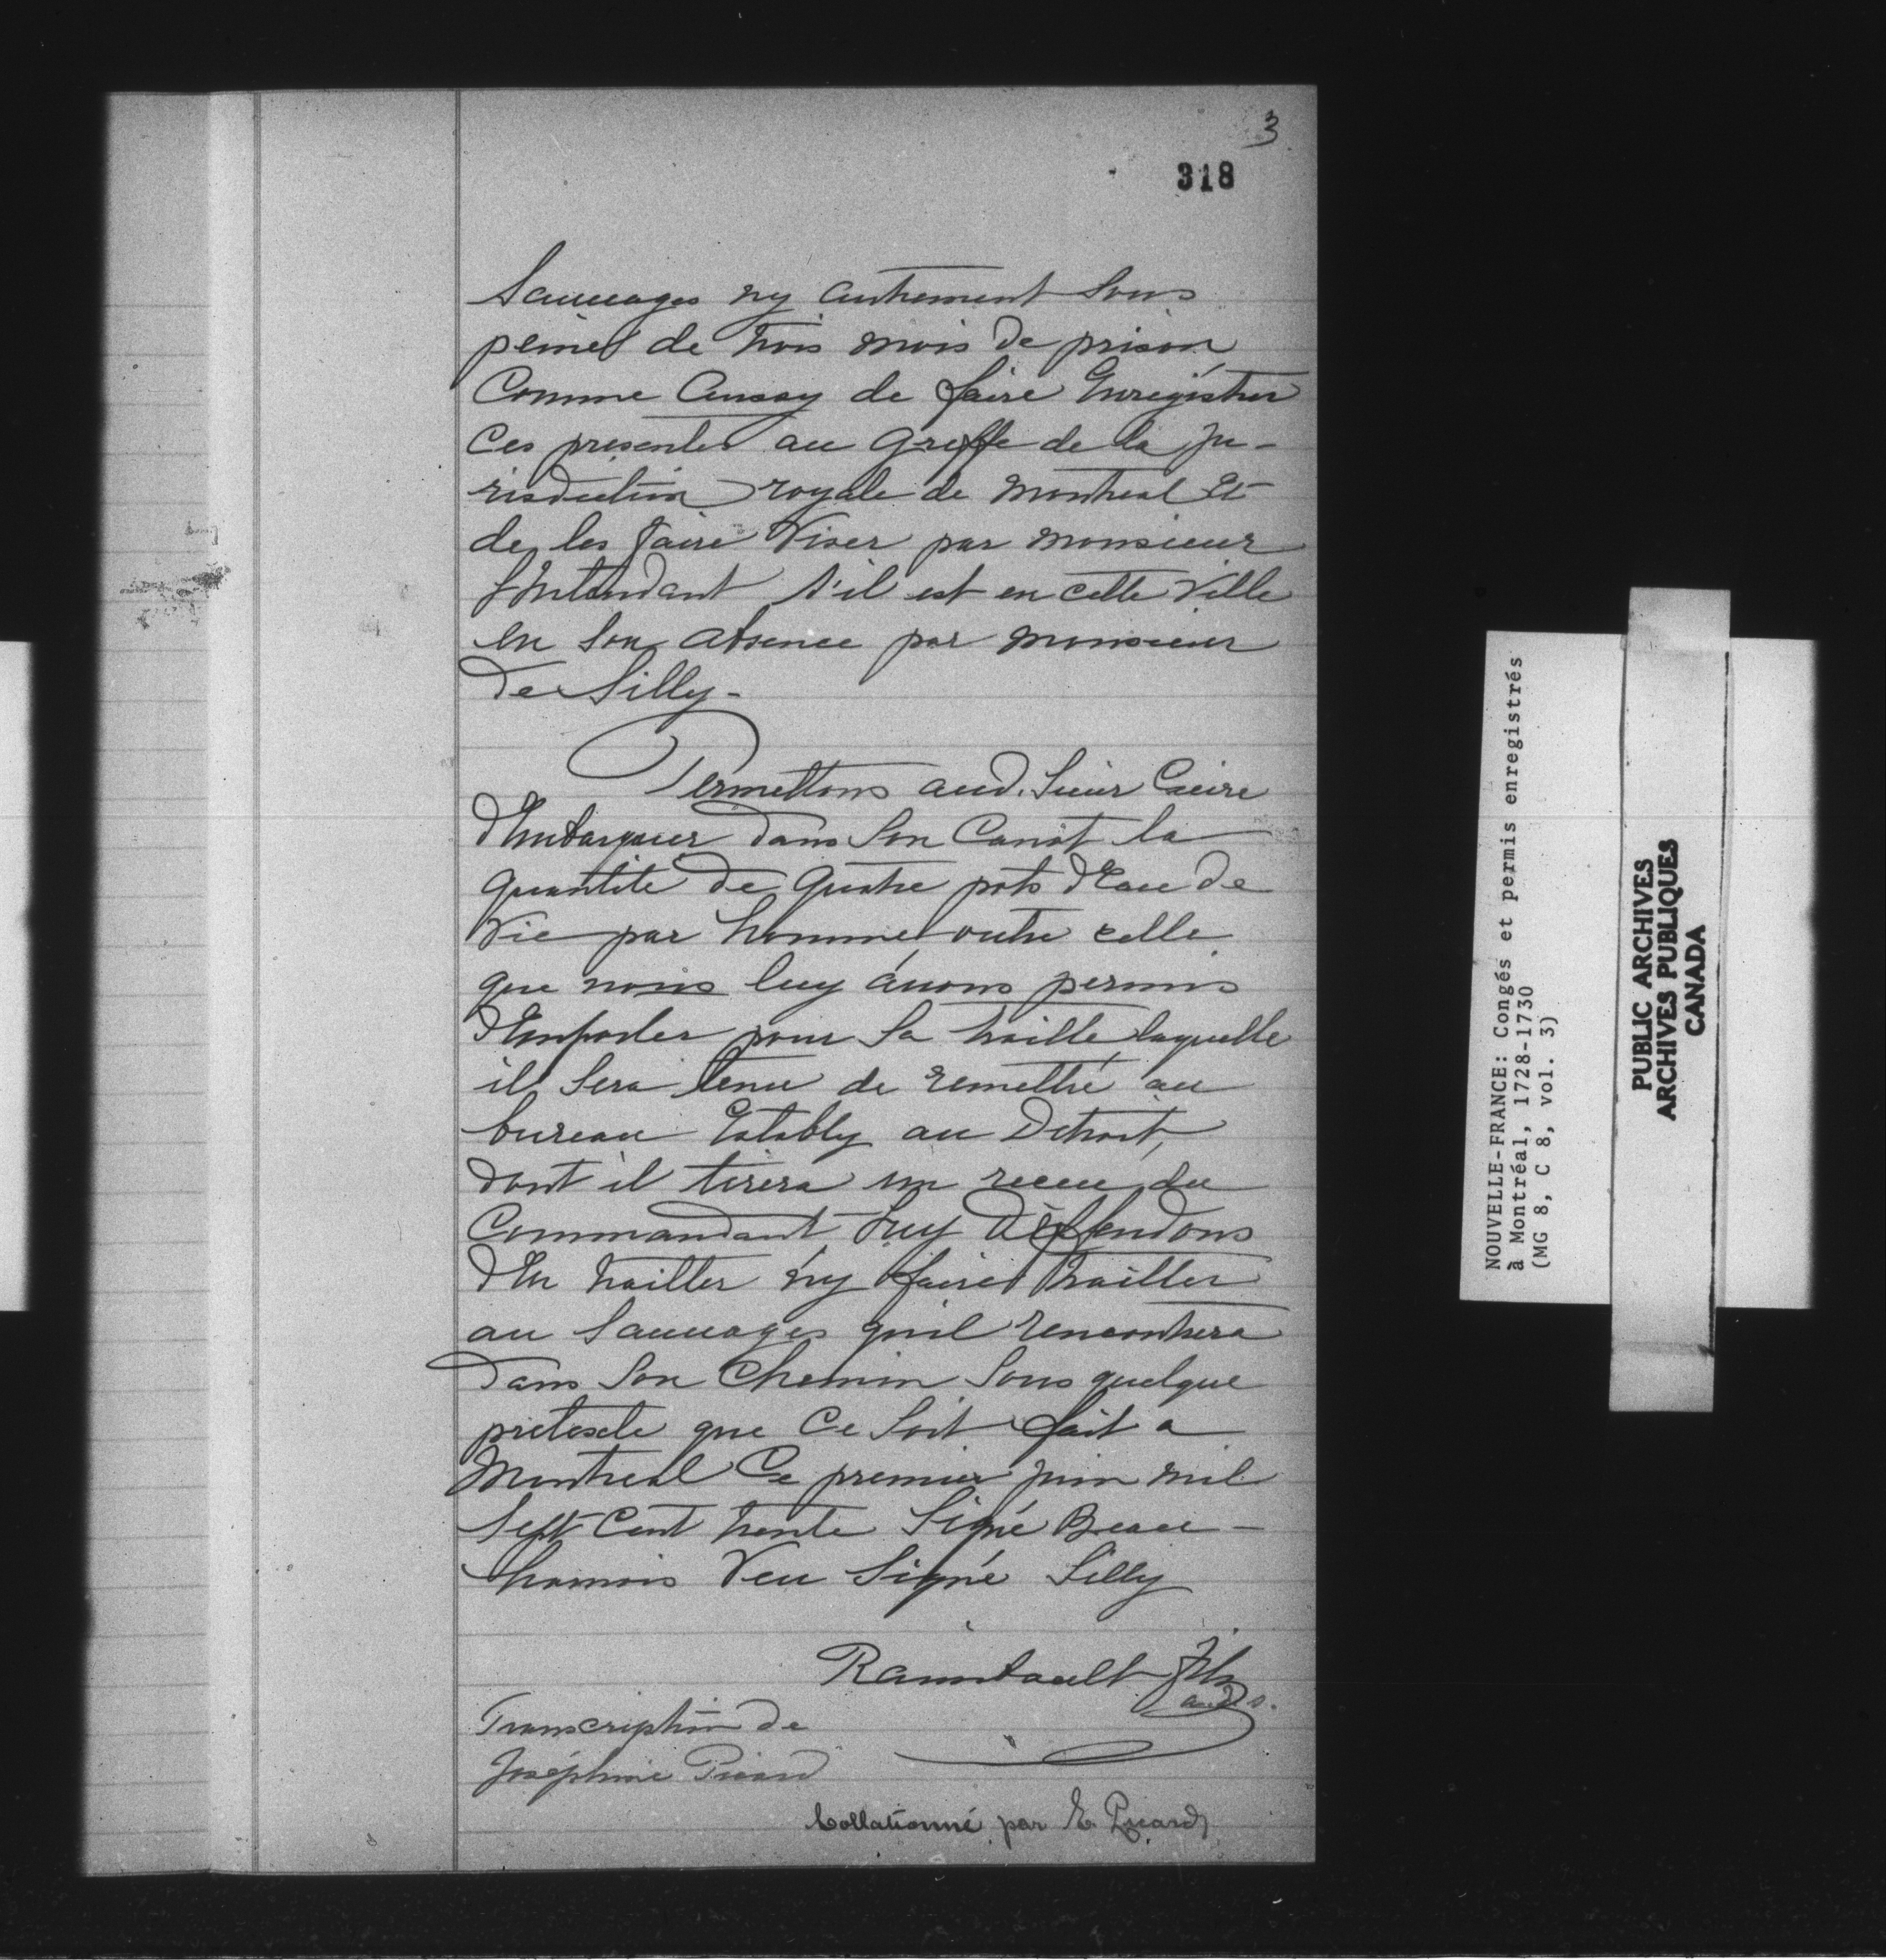 3
318
Sauuages ny autrement Sous
peine de trois mois de prison
Comme Aussy de faire Enregistrer
Ces presentes au Greffe de la Ju-
risdiction royale de Montreal Et
de les faire Viser par Monsieur
L'Intendant s'il est en cette Ville
en son absence par Monsieur
De Silly-
Permettons aud. Sieur Cuire
d'Embarquer Dans Son Canot la
Quantité De Quatre pots d'Eau de
Vie par homme outre celle
que nous luy auons permis
d'Emporter pour Sa traitte laquelle
il Sera tenu de remettre au
bureau Estably au Detroit,
Dont il tirera un receu du
Commandant Luy Deffendons
d'En traitter ny faire traitter
au Sauuages qu'il rencontrera
Dans Son Chemin Sous quelque
pretexte que Ce Soit fait a
Montreal Ce premier juin mil
Sept Cent trente Signé Beau-
harnois Veu Signé Silly
Raimbault fils
Transcription de
Joséphine Picard
Collationné par E. Picard
NOUVELLE-FRANCE: Congés et permis enregistrés
à Montréal, 1728-1730
(MG 8, C 8, vol. 3)
PUBLIC ARCHIVES
ARCHIVES PUBLIQUES
CANADA